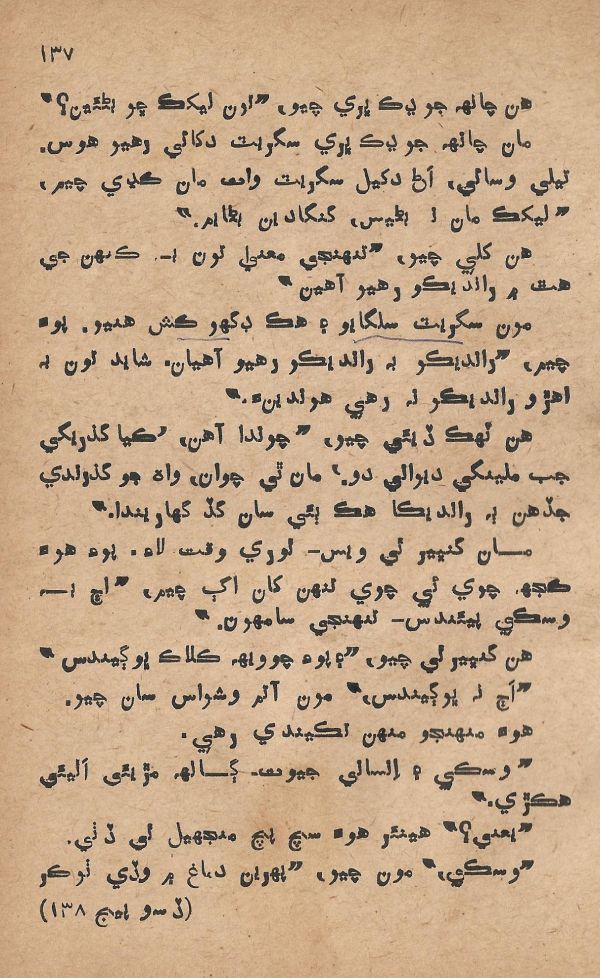 ١٣٧
هن چانهه جو ڍڪ ڀري چيو، ”تون ليکڪ ڇو بڻئين؟“
مان چانهه جو ڍڪ ڀري سگريٽ دکائي رهيو هوس.
تيلي وسائي، اڻ دکيل سگريٽ وات مان ڪڍي چيم،
”ليکڪ مان نہ بڻيس، گنگادين بڻايم.“
هن کلي چيو، ”تنهنجي معنيٰ تون بہ ڪنهن جي
هٿ ۾ رانديڪو رهيو آهين“
مون سگريٽ سلگايو ۽ هڪ ڊگهو ڪش هنيو. پوءِ
چيم، ”رانديڪو بہ رانديڪو رهيو آهيان. شايد تون بہ
اهڙو رانديڪو نہ رهي هوندينءَ.“
هن ٽهڪ ڏيئي چيو، ”چوندا آهن، ’کيا گذريگي
جب ملينگي ديواني دو.‘ مان ٿي چوان، واهہ جو گذرندي
جڏهن بہ رانديڪا هڪ ٻئي سان گڏ گهاريندا.“
مـــان گنڀير ٿي ويس- ٿوري وقت لاءِ. پوءِ هوءَ
ڪجهہ چوي ئي چوي تنهن کان اڳ چيم، ”اڄ بہ
وسڪي پيئندس- تنهنجي سامهون.“
هن گنڀير ٿي چيو، ”۽ پوءِ چوويهہ ڪلاڪ ڀوڳيندس“
”اڄ نہ ڀوڳيندس،“ مون آتم وشواس سان چيو.
هوءَ منهنجو منهن تڪيندي رهي.
”وسڪي ۽ انساني جيوت- ڳـــالهہ مڙيئي اَليئي
هڪڙي.“
”يعني؟“ هينئر هوءَ سچ پچ منجهيل ٿي ڏٺي.
”وسڪي،“ مون چيو، ”پهرين دماغ ۾ وڏي ٺوڪر
(ڏسو پيج ١٣٨)